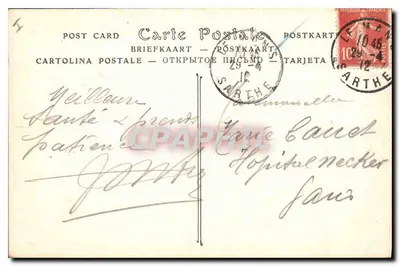 POST CARD Carte Postale POSTKARTE
BRIEFKAART - POSTKAARTS
CARTOLINA POSTALE - ОТКРЫТОЕ ПИСЬМО TARJETA
LE MANS
10 45
29 - 4
12
SARTHE
LE MANS
10 45
29 - 4
12
SARTHE
10
Meilleure
Santé & prends
patience
Mademoiselle
Marie
Hopital Necker
Paris